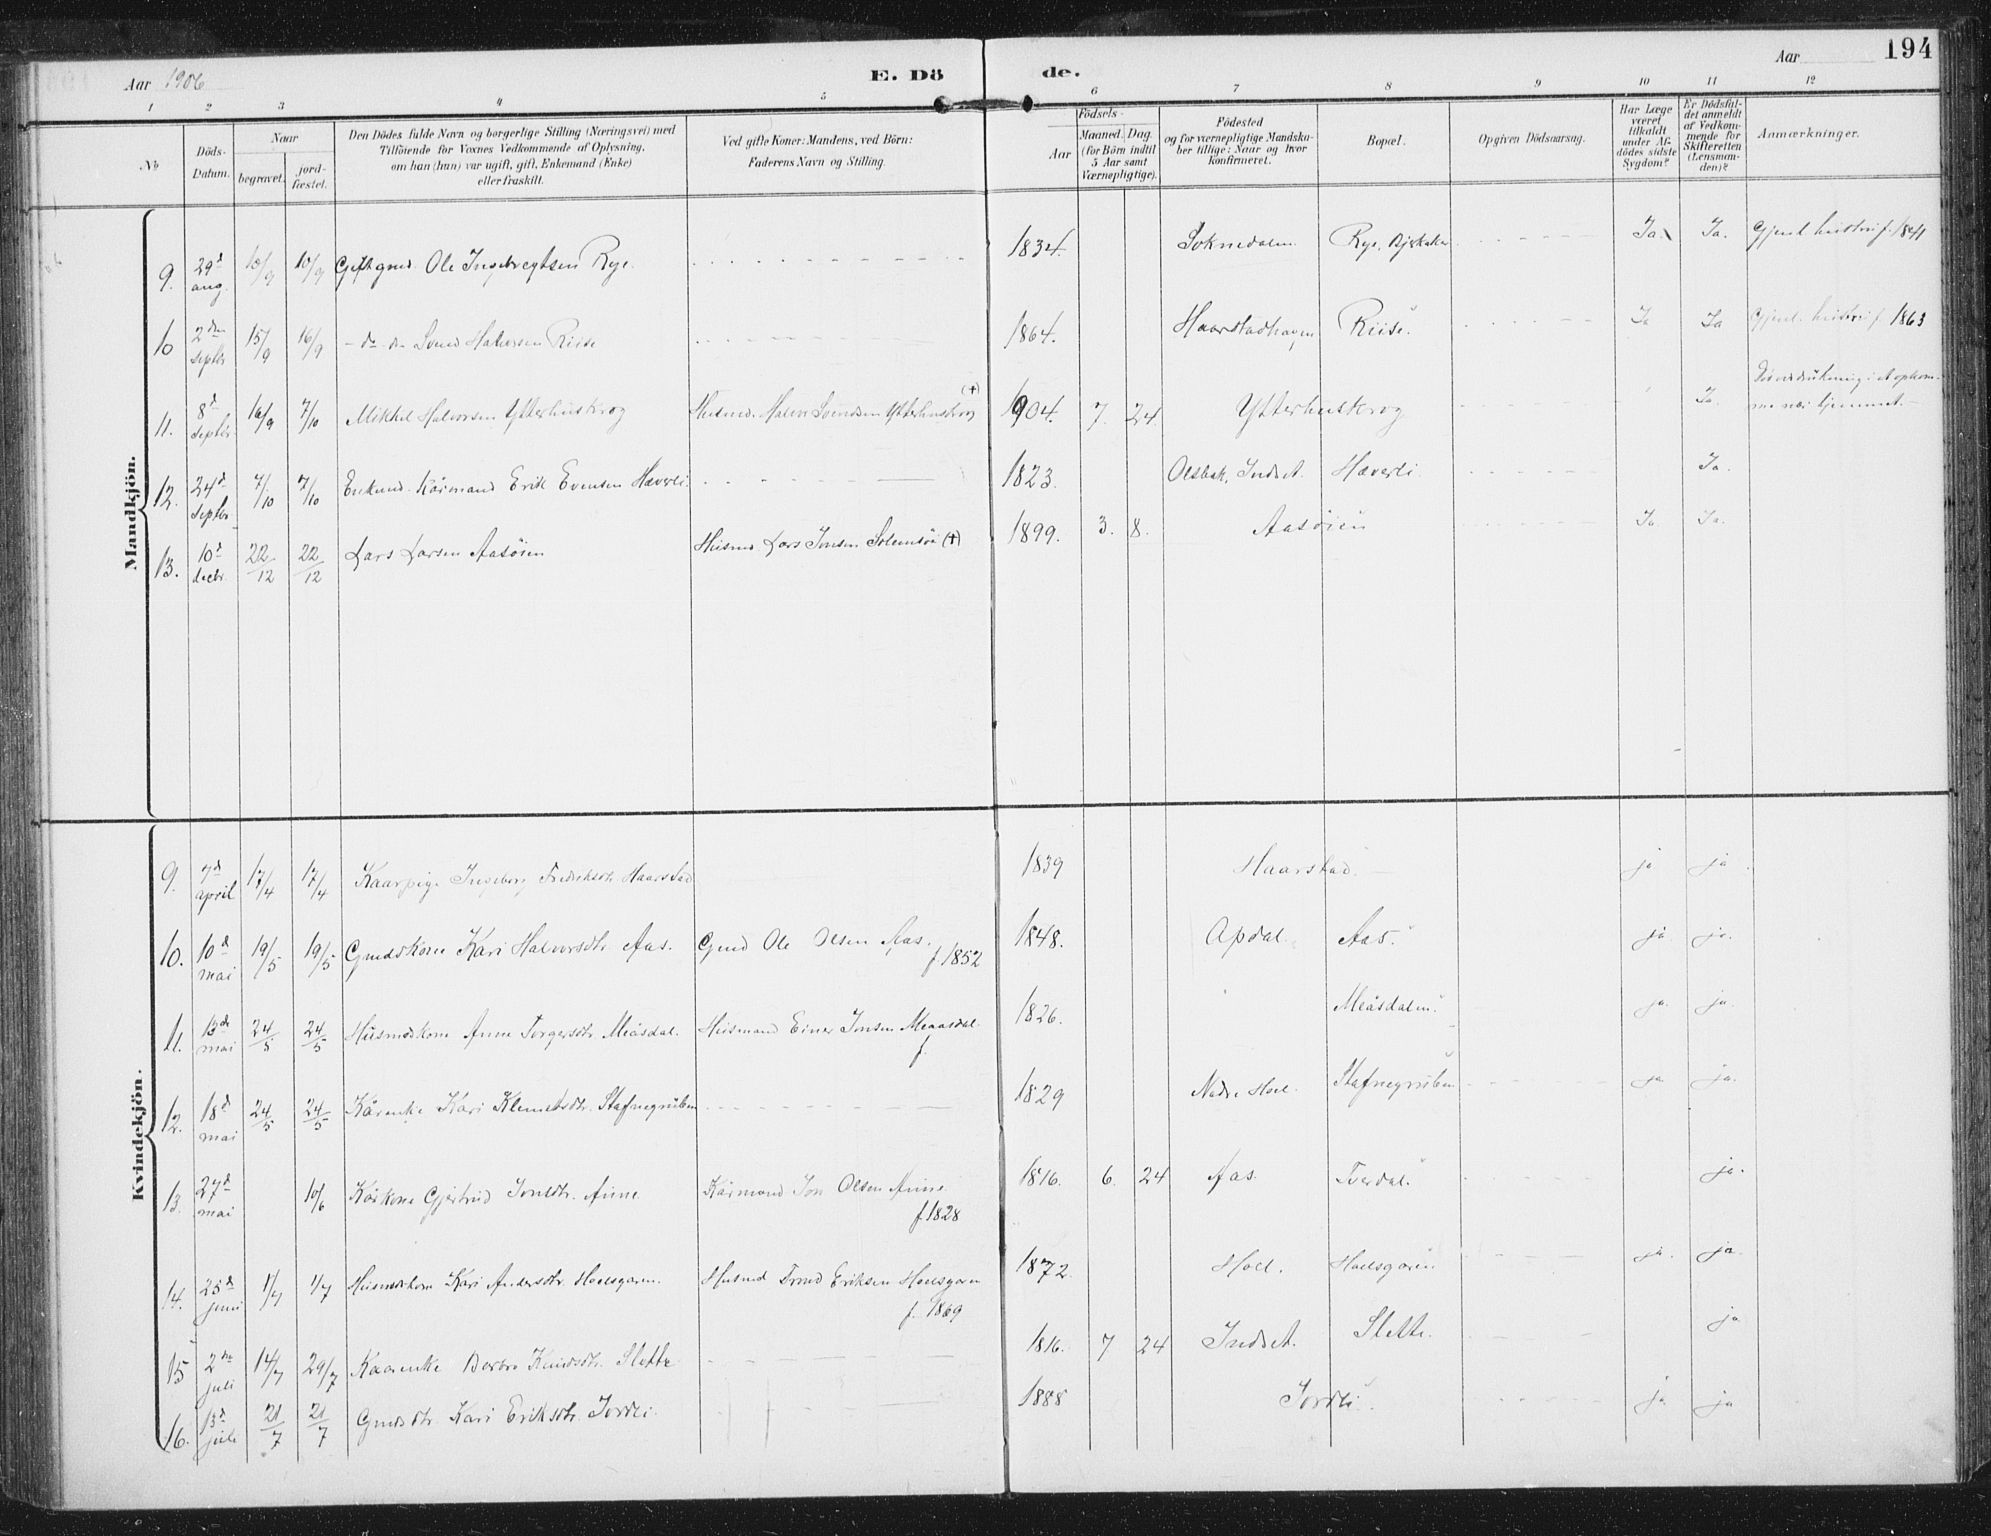 Aar 1906
E. Dö de.
Aar
194
1 2 3 4 5 6 7 8 9 10 11 12
No
Döds-Datum.
Naar
begravet.
jord-fæstet.
Den Dödes fulde Navn og borgerlige Stilling (Næringsvei) med
Tilföiende for Voxnes Vedkommende af Oplysning,
om han (hun) var ugift, gift, Enkemand (Enke)
eller fraskilt.
Ved gifte Koner: Mandens, ved Börn:
Faderens Navn og Stilling.
Födsels-
Aar
Maaned. Dag.
(for Börn indtil
5 Aar samt
Værnepligtige).
Födested
og for værnepligtige Mandska-
ber tillige: Naar og hvor
konfirmeret.
Bopæl.
Opgiven Dödsaarsag.
Har Læge
været
tilkaldt
under Af-
dödes sidste
Sygdom?
Er Dödsfal-
det anmeldt
af Vedkom-
mende for
Skifteretten
(Lensman-
den)?
Anmærkninger.
Mandkjön.
9. 29d aug. 10/9 10/9 Gift gmd. Ole Ingebregtsen Rye. 1834. Soknedalen Rye, Bjerkaker Ja. Ja. Gjenl. hustru f. 1841
10 2den septbr 15/9 16/9 - do - do Svend Halvorsen Riise 1864. Haarstadhagen Riise. Ja Ja Gjenl. hustru f. 1863
11. 8d septbr 16/9 7/10 Mikkel Halvorsen Ytterhuskrog Husmd. Halvor Svendsen Ytterhuskrog (+) 1904. 7. 24 Ytterhuskrog Ja.
me nær hjemmet.
12. 24d septbr 7/10 7/10 Enkemd. Kårmand Erik Evensen Hæverli. 1823. Olsbak, Indset Hæverli Ja.
13. 10d decbr. 22/12 22/12 Lars Larsen Aasøien Husmd Lars Jonsen Solemsøi (+) 1899. 3. 8. Aasøien Ja. Ja.
Kvindekjön.
9. 7d april 17/4 17/4 Kaarpige Ingeborg Fredriksdtr. Haarstad 1839 Haarstad. ja ja
10. 10d mai 19/5 19/5 Gmdskone Kari Halvorsdtr. Aas. Gmd Ole Olsen Aas. f. 1852 1848. Opdal. Aas. ja ja.
11. 13de mai 24/5 24/5 Husmdkone Anne Torgersdtr. Meåsdal. Husmand Einer Jonsen Meaasdal. f. 1826. Meåsdalen. ja. ja.
12. 18d mai 24/5 24/5 Kårenke Kari Klemetsdtr. Stafnegruben 1829 Nedre Hoel. Stafnegruben ja ja.
13. 27d mai 10/6 Kårkone Gjertrud Jonsdtr. Aune Kårmand Jon Olsen Aune. f. 1828 1816. 6. 24 Aas. Tverdal. ja.
14. 25d juni 1/7 1/7 Husmdkone Kari Andersdtr. Hoelsgaren. Husmd Trond Eriksen Hoelsgaren f. 1869 1872. Hoel. Hoelsgaren ja. ja
15 2den juli 14/7 29/7 Kaarenke Berbro Knudsdtr. Slette 1816. 7 24 Indset. Slette. ja
16. 13d juli 21/7 21/7 Gmdsdtr. Kari Eriksdtr. Jordli. 1888 Jordli. ja ja